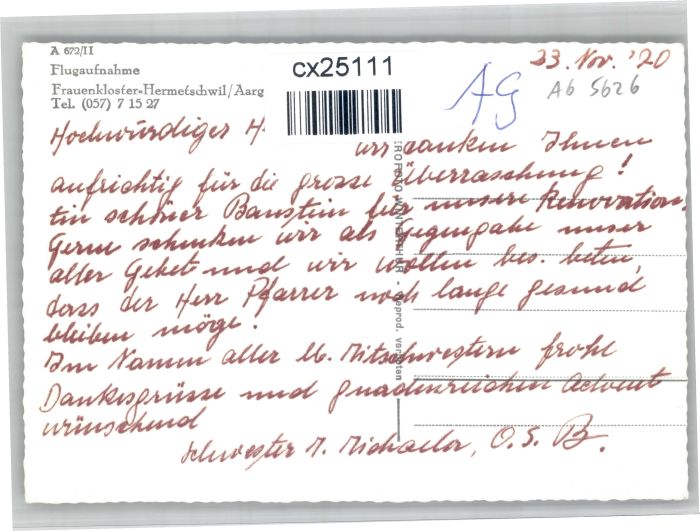 A 672/II
Flugaufnahme
Frauenkloster-Hermetschwil/Aarg
Tel. (057) 7 15 27
cx25111
AG
23. Nov. '70
A6 5626
Hochwürdiger H.
wir danken Ihnen
aufrichtig für die grosse Überraschung!
Ein schöner Baustein für unsere Renovation.
Gerne schenken wir als Gegengabe unser
aller Gebet und wir wollen bes. beten,
dass der Herr Pfarrer noch lange gesund
bleiben möge.
Im Namen aller lb. Mitschwestern frohe
Dankesgrüsse und gnadenreichen Advent
wünschend
Schwester M. Michaela, O. S. B.